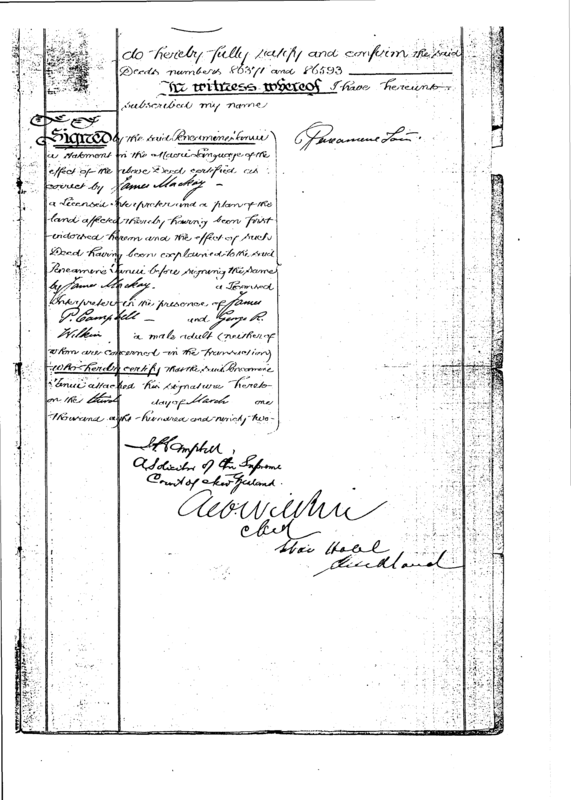 do hereby fully ratify and confirm the said
Deeds numbers 86371 and 86593
In witness whereof I have hereunto
subscribed my name
Signed by the said Pereamine Tanui
a statement in the Maori Language of the
effect of the above Deed certified as
correct by James Mackay
a Licensed Interpreter and a plan of the
land affected thereby having been first
endorsed hereon and the effect of such
Deed having been explained to the said
Pereamine Tanui before signing the same
by James Mackay a Licensed
Interpreter in the presence of James
P. Campbell and George R.
Wilkin a male adult (neither of
whom are concerned in the transaction)
who hereby certify that the said Pereamine
Tanui attached his signature hereto
on the third day of March one
thousand eight hundred and ninety two
Pereamine
Campbell,
A Solicitor of the Supreme
Court of New Zealand.
Geo. Wilkin
Clerk
Star Hotel
Auckland